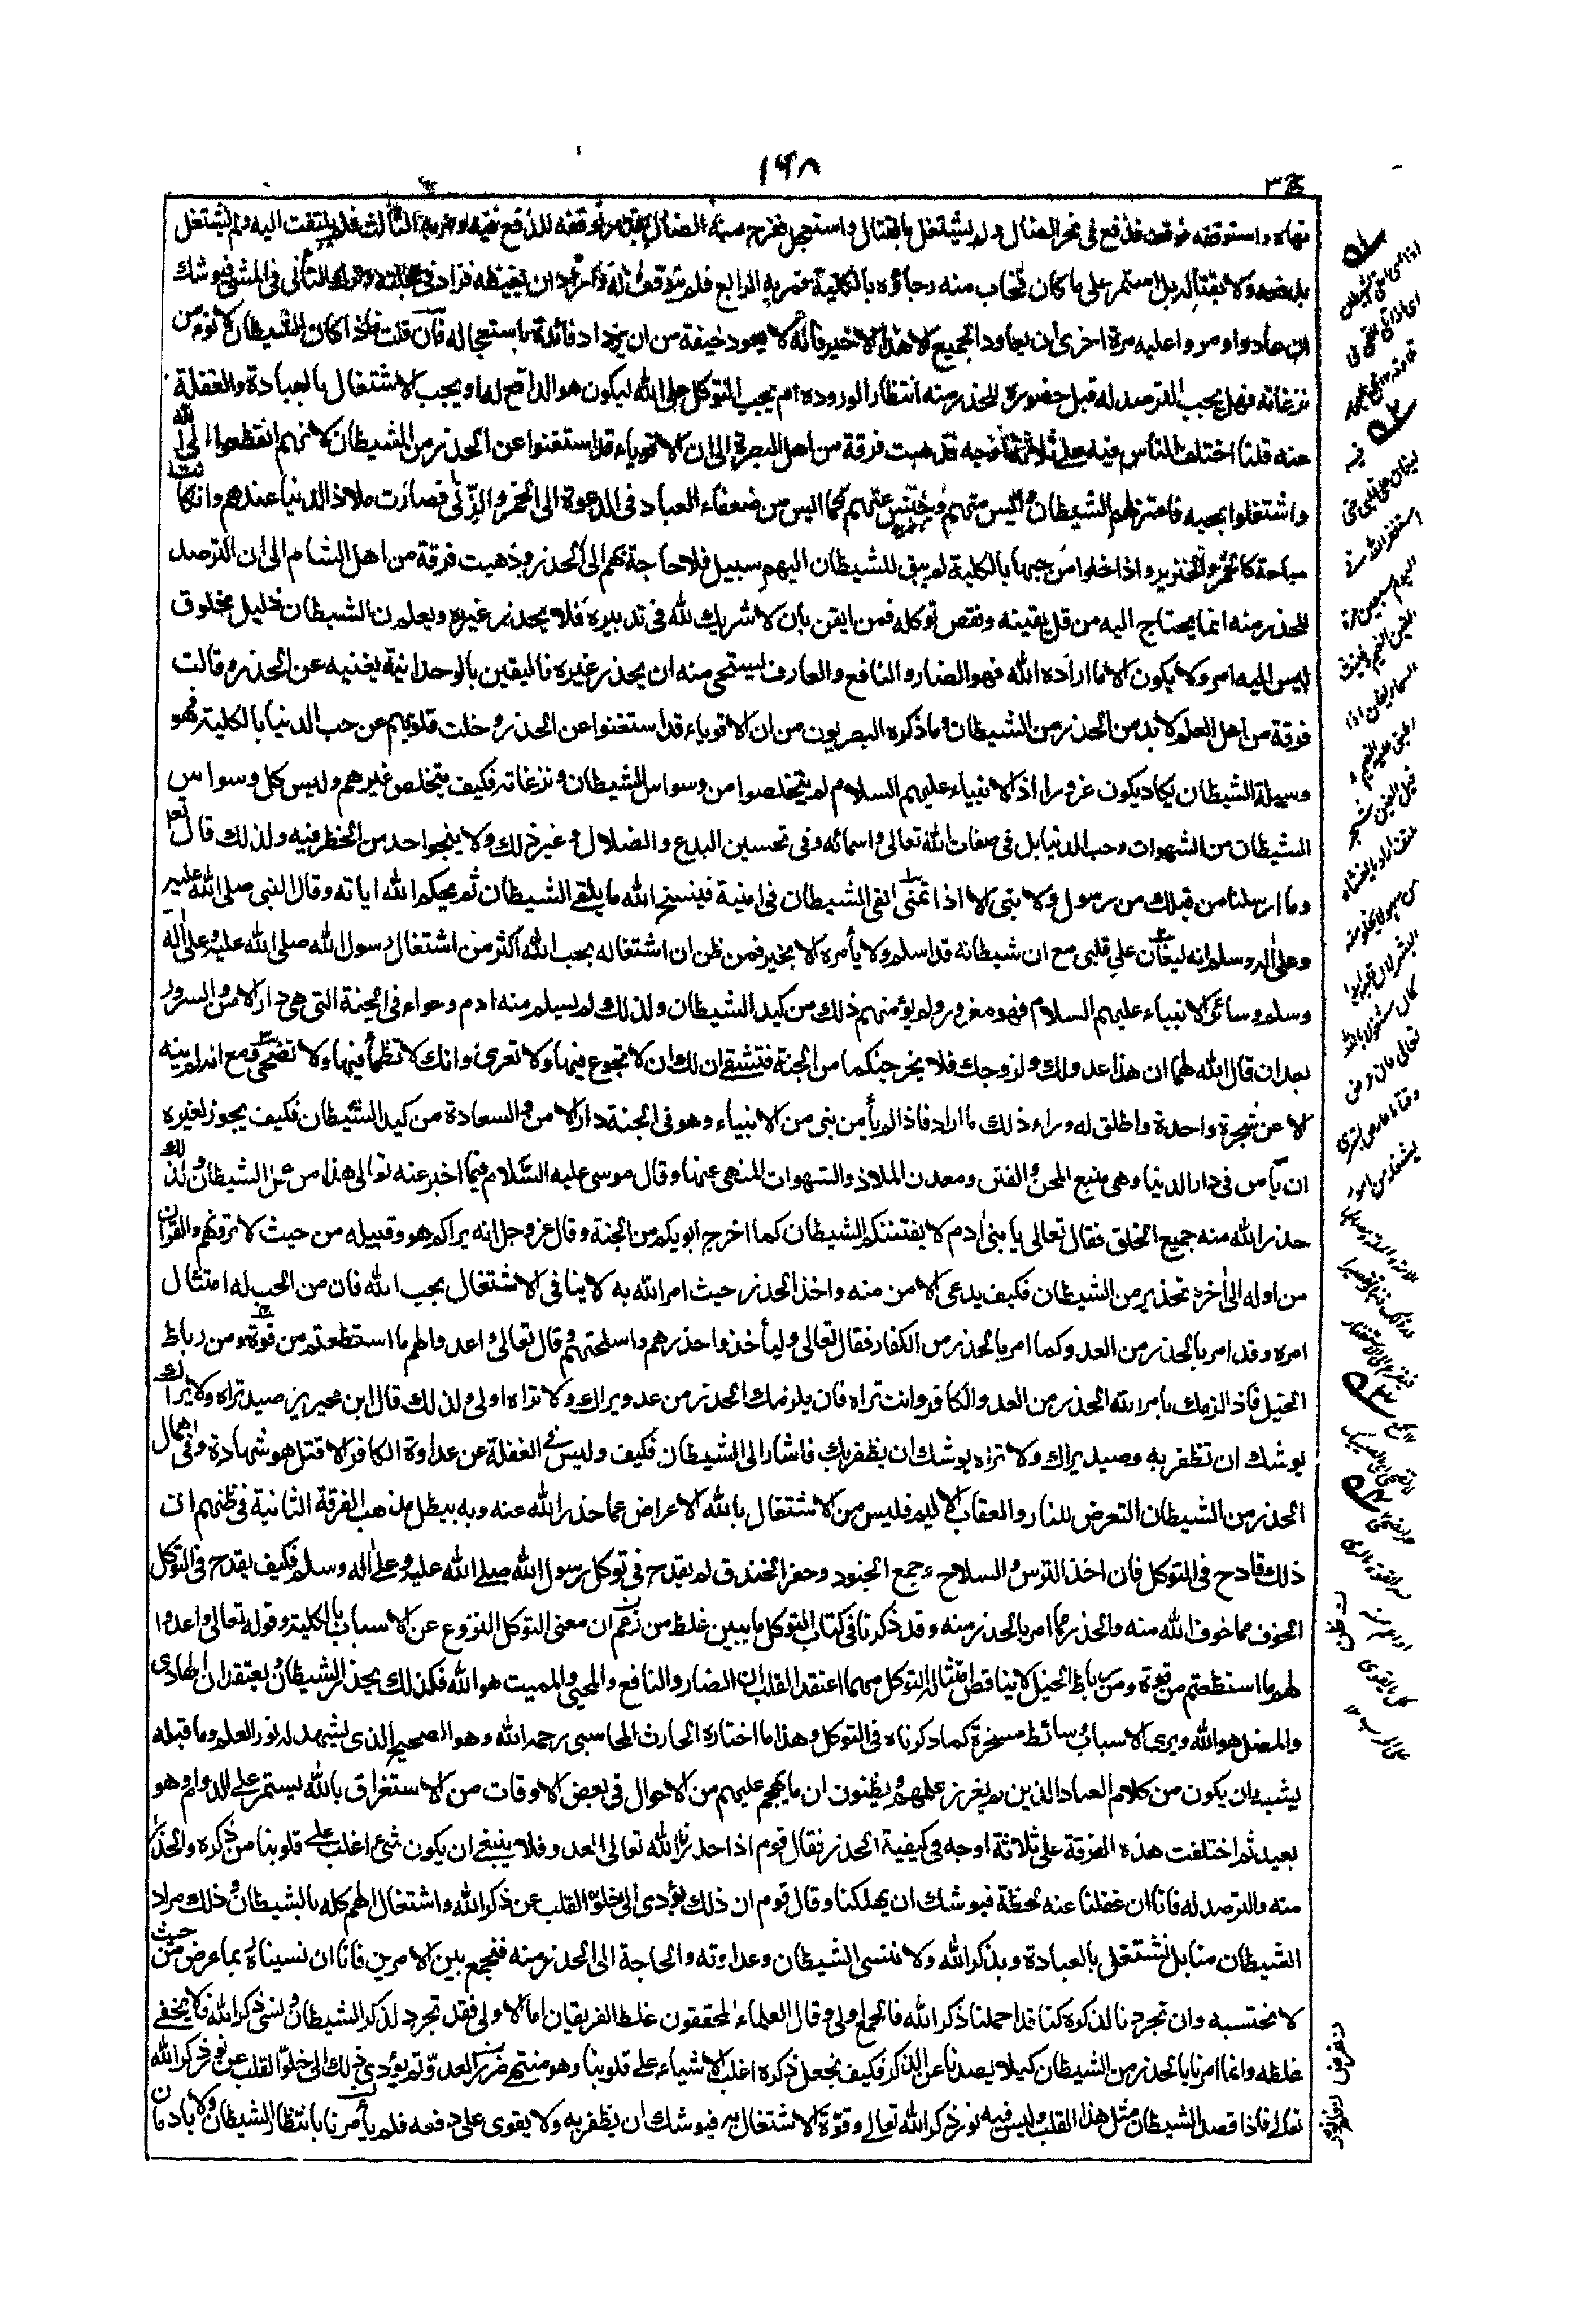 ١٦٨
ج ٣
نهاه واستوقفه فوقف فدفع في نحر الضال ولم يشتغل بالقتال واستعجل ففرح منه الضال بقدر توقفه للدفع فيه ومر به الثالث فلم يلتفت اليه ولم يشتغل
بدفعه ولا بقتاله بل استمر على ما كان فخاب منه رجاؤه بالكلية فمر به الرابع فلم يتوقف له واراد ان يغيظه فزاد في عجلته وترك التأني في المشي فيوشك
ان عادوا ومروا عليه مرة اخرى ان يعاود الجميع الا هذا الاخير فانه لا يعود خيفة من ان يزداد فائدة باستعجاله فان قلت فاذا كان الشيطان لا تؤمن
نزغاته فهل يجب الترصد له قبل حضوره للحذر منه انتظارا لوروده ام يجب التوكل على الله ليكون هو الدافع له او يجب الاشتغال بالعبادة والغفلة
عنه قلنا اختلف الناس فيه على ثلاثة اوجه فذهبت فرقة من اهل البصرة الى ان الاقوياء قد استغنوا عن الحذر من الشيطان لانهم انقطعوا الى الله
واشتغلوا بحبه فاعتزلهم الشيطان وايس منهم وخنس عنهم كما ايس من ضعفاء العباد في الدعوة الى الخمر والزنى فصارت ملاذ الدنيا عندهم وان كانت
مباحة كالخمر والخنزير واذا خلوا من حبها بالكلية لم يبق للشيطان اليهم سبيل فلا حاجة بهم الى الحذر وذهبت فرقة من اهل الشام الى ان الترصد
للحذر منه انما يحتاج اليه من قل يقينه ونقص توكله فمن ايقن بان لا شريك لله في تدبيره فلا يحذر غيره ويعلم ان الشيطان ذليل مخلوق
ليس اليه امر ولا يكون الا ما اراده الله فهو الضار والنافع والعارف يستحي منه ان يحذر غيره فاليقين بالوحدانية يغنيه عن الحذر وقالت
فرقة من اهل العلم لا بد من الحذر من الشيطان وما ذكره البصريون من ان الاقوياء قد استغنوا عن الحذر وخلت قلوبهم عن حب الدنيا بالكلية فهو
وسيلة الشيطان يكاد يكون غرورا اذ الانبياء عليهم السلام لم يتخلصوا من وسواس الشيطان ونزغاته فكيف يتخلص غيرهم وليس كل وسواس
الشيطان من الشهوات وحب الدنيا بل في صفات الله تعالى واسمائه وفي تحسين البدع والضلال وغير ذلك ولا ينجو احد من الخطر فيه ولذلك قال تعم
وما ارسلنا من قبلك من رسول ولا نبي الا اذا تمنى القى الشيطان في امنيته فينسخ الله ما يلقي الشيطان ثم يحكم الله اياته وقال النبي صلى الله عليه
وعلى اله وسلم انه ليغان على قلبي مع ان شيطانه قد اسلم ولا يأمره الا بخير فمن ظن ان اشتغاله بحب الله اكثر من اشتغال رسول الله صلى الله عليه وعلى اله
وسلم وسائر الانبياء عليهم السلام فهو مغرور ولم يؤمنهم ذلك من كيد الشيطان ولذلك لم يسلم منه ادم وحواء في الجنة التي هي دار الامن والسرور
بعد ان قال الله لهما ان هذا عدو لك ولزوجك فلا يخرجنكما من الجنة فتشقى ان لك ان لا تجوع فيها ولا تعرى وانك لا تظمأ فيها ولا تضحى ومع انه لم ينه
الا عن شجرة واحدة واطلق له وراء ذلك ما اراد فاذا لم يأمن نبي من الانبياء وهو في الجنة دار الامن والسعادة من كيد الشيطان فكيف يجوز لغيره
ان يأمن في دار الدنيا وهي منبع المحن والفتن ومعدن الملاذ والشهوات المنهي عنها وقال موسى عليه السلام فيما اخبر عنه تعالى هذا من عمل الشيطان ولذلك
حذر الله منه جميع الخلق فقال تعالى يا بني ادم لا يفتننكم الشيطان كما اخرج ابويكم من الجنة وقال عز وجل انه يراكم هو وقبيله من حيث لا ترونهم والقران
من اوله الى اخره تحذير من الشيطان فكيف يدعى الامن منه واخذ الحذر حيث امر الله به لا ينافي الاشتغال بحب الله فان من الحب له امتثال
امره وقد امر بالحذر من العدو كما امر بالحذر من الكفار فقال تعالى وليأخذوا حذرهم واسلحتهم وقال تعالى واعدوا لهم ما استطعتم من قوة ومن رباط
الخيل فاذ الزمك بامر الله الحذر من العدو الكافر وانت تراه فان يلزمك الحذر من عدو يراك ولا تراه اولى ولذلك قال ابن محيريز صيد تراه ولا يراك
يوشك ان تظفر به وصيد يراك ولا تراه يوشك ان يظفر بك فاشار الى الشيطان فكيف وليس في الغفلة عن عداوة الكافر الا قتل هو شهادة وفي اهمال
الحذر من الشيطان التعرض للنار والعقاب الاليم فليس من الاشتغال بالله الاعراض عما حذر الله عنه وبه يبطل مذهب الفرقة الثانية في ظنهم ان
ذلك قادح في التوكل فان اخذ الترس والسلاح وجمع الجنود وحفر الخندق لم يقدح في توكل رسول الله صلى الله عليه وعلى اله وسلم فكيف يقدح في التوكل
الخوف مما خوف الله منه والحذر مما امر بالحذر منه وقد ذكرنا في كتاب التوكل ما يبين غلط من زعم ان معنى التوكل النزوع عن الاسباب بالكلية وقوله تعالى واعدوا
لهم ما استطعتم من قوة ومن رباط الخيل لا يناقض امتثاله التوكل مهما اعتقد القلب ان الضار والنافع والمحيي والمميت هو الله فكذلك يحذر الشيطان ويعتقد ان الهادي
والمضل هو الله ويرى الاسباب وسائط مسخرة كما ذكرناه في التوكل وهذا ما اختاره الحارث المحاسبي رحمه الله وهو الصحيح الذي يشهد له نور العلم وما قبله
يشبه ان يكون من كلام العباد الذين لم يغزر علمهم ويظنون ان ما يهجم عليهم من الاحوال في بعض الاوقات من الاستغراق بالله يستمر على الدوام وهو
بعيد ثم اختلفت هذه الفرقة على ثلاثة اوجه في كيفية الحذر فقال قوم اذا حذرنا الله تعالى العدو فلا ينبغي ان يكون شيء اغلب على قلوبنا من ذكره والحذر
منه والترصد له فانا ان غفلنا عنه لحظة فيوشك ان يهلكنا وقال قوم ان ذلك يؤدى الى خلو القلب عن ذكر الله واشتغال الهم كله بالشيطان وذلك مراد
الشيطان منا بل نشتغل بالعبادة وبذكر الله ولا ننسى الشيطان وعداوته والحاجة الى الحذر منه فنجمع بين الامرين فانا ان نسيناه ربما عرض من حيث
لا نحتسبه وان تجردنا لذكره كنا قد اهملنا ذكر الله فالجمع اولى وقال العلماء المحققون غلط الفريقان اما الاول فقد تجرد لذكر الشيطان ونسى ذكر الله فلا يخفى
غلطه وانما امرنا بالحذر من الشيطان كيلا يصدنا عن الذكر فكيف نجعل ذكره اغلب الاشياء على قلوبنا وهو منتهى ضرر العدو ثم يؤدي ذلك الى خلو القلب عن نور ذكر الله
تعالى فاذا قصد الشيطان مثل هذا القلب وليس فيه نور ذكر الله تعالى وقوة الاشتغال به فيوشك ان يظفر به ولا يقوى على دفعه فلم يأمرنا بانتظار الشيطان ولا بادمان